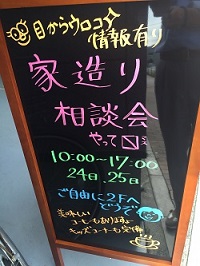 目からウロコ
情報有り
家造り
相談会
やって
10:00〜17:00
24日.25日
ご自由に2Fへ
どうぞ
美味しい
コーヒーもありますよ〜
キッズコーナーも完備